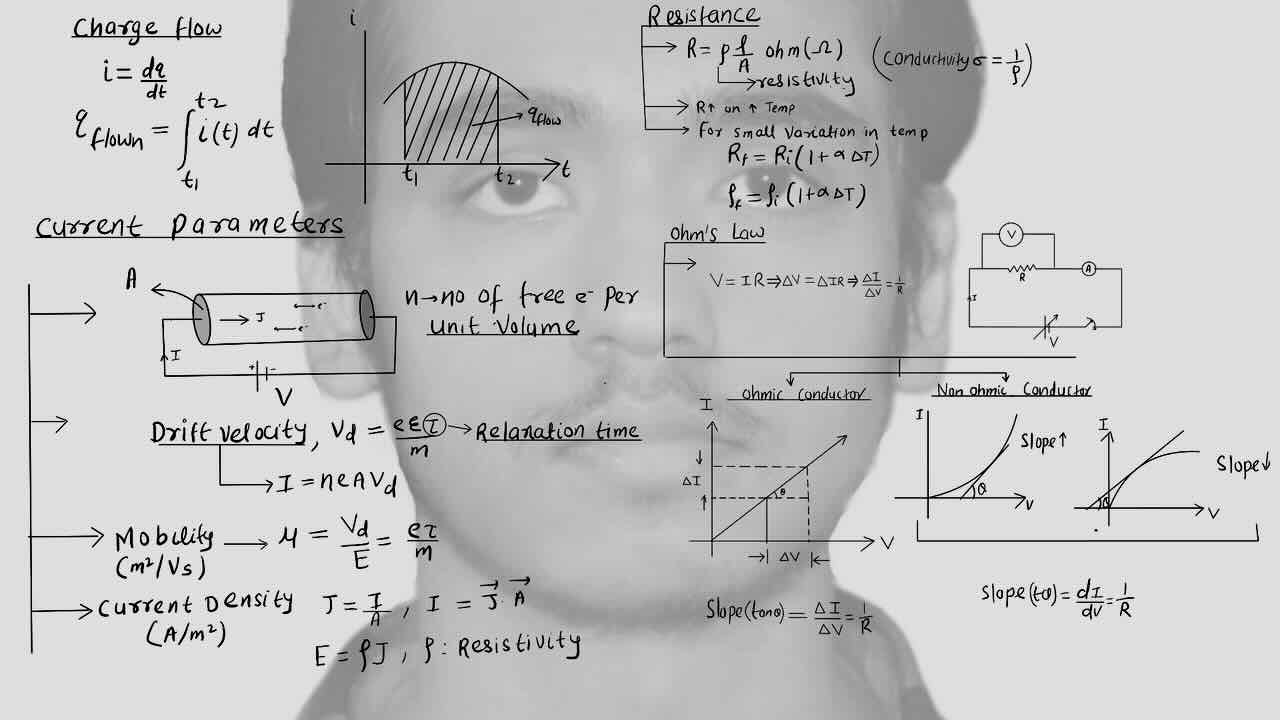 Charge flow
i = dq/dt
q flown = ∫ t1 t2 i(t) dt
i
q flow
t1 t2 t
Current Parameters
A
J e⁻
e⁻
I
+ -
V
n→no of free e⁻ per
unit volume
Drift velocity, Vd = eEτ/m → Relaxation time
I = neAVd
Mobility → μ = Vd/E = eτ/m
(m²/Vs)
Current Density J = I/A, I = J⃗. A⃗
(A/m²)
E = ρJ, ρ: Resistivity
Resistance
R = ρ ℓ/A ohm(Ω) (conductivity σ = 1/ρ)
resistivity
R↑ on ↑ Temp
For small variation in temp
Rf = Ri(1+α ΔT)
ρf = ρi (1+αΔT)
Ohm's Law
V = IR ⇒ ΔV = ΔIR ⇒ ΔI/ΔV = 1/R
V
R A
I
V
Ohmic Conductor
I
ΔI
θ
V
ΔV
Slope(tanθ) = ΔI/ΔV = 1/R
Non ohmic Conductor
I
Slope↑
θ
V
I
Slope↓
θ
V
Slope(tθ) = dI/dV = 1/R